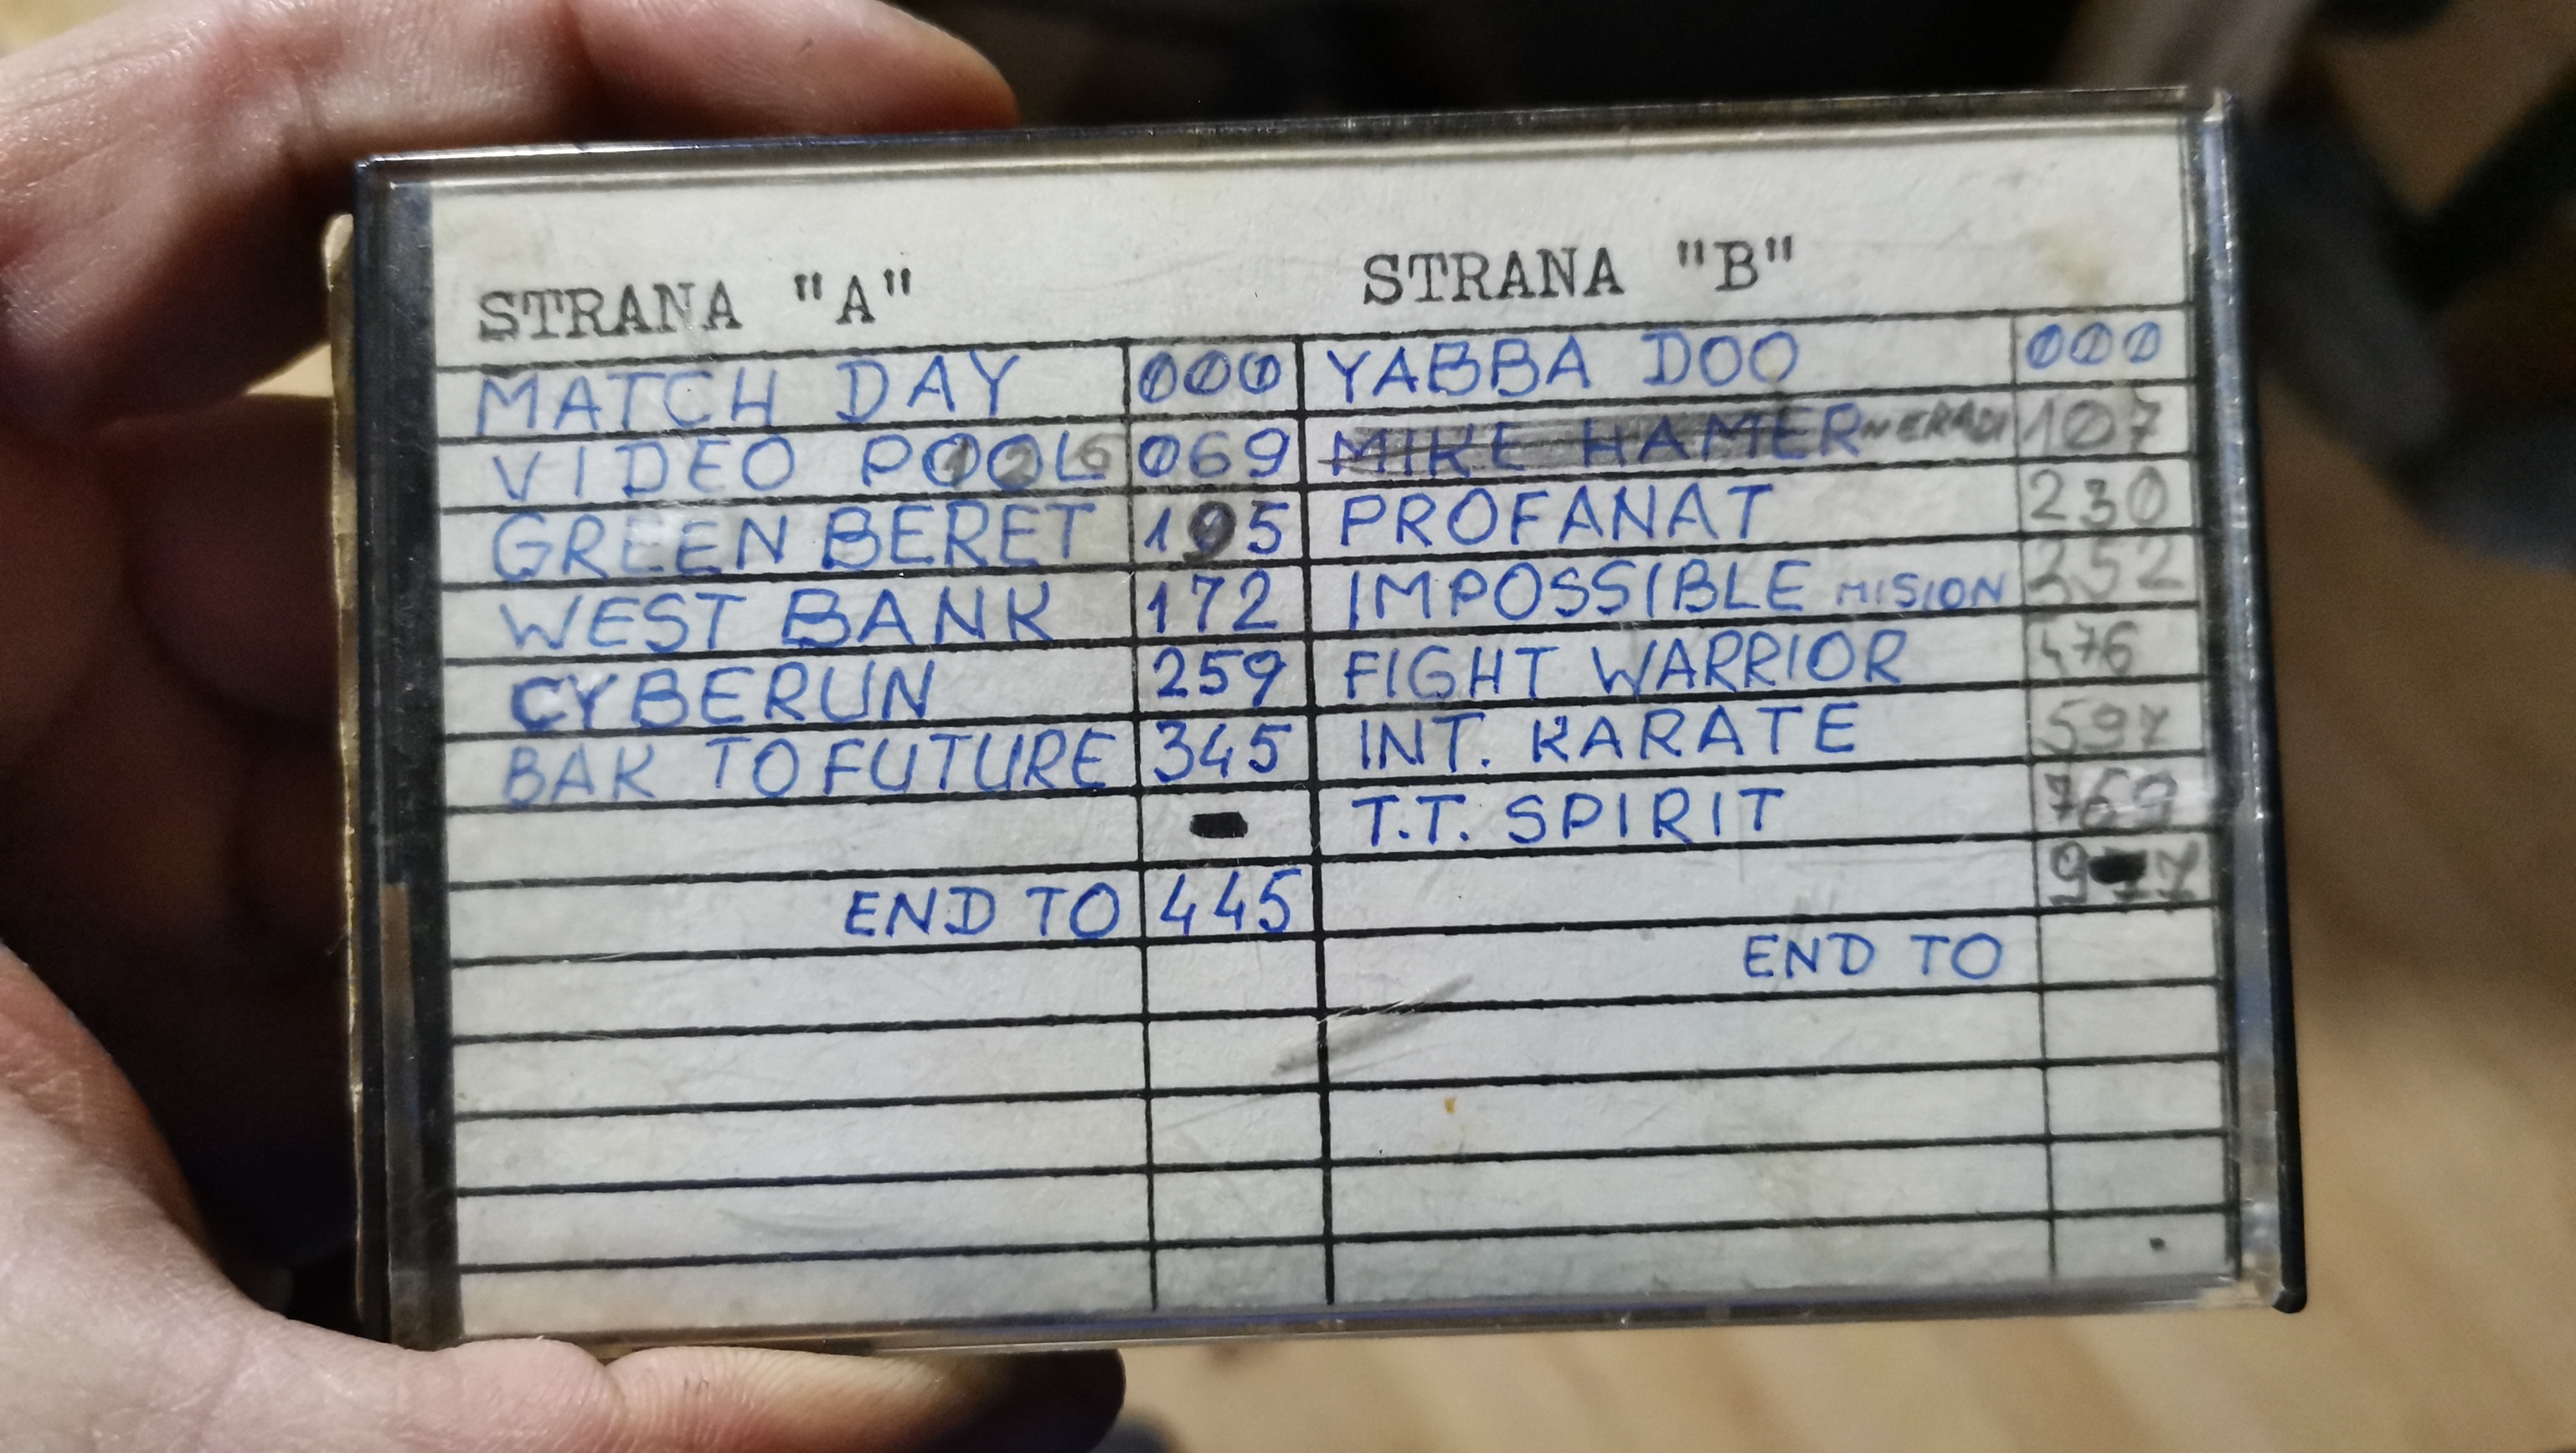 STRANA "A"
MATCH DAY 000
VIDEO POOL 126 069
GREEN BERET 195
WEST BANK 172
CYBERUN 259
BAK TO FUTURE 345
END TO 445
STRANA "B"
YABBA DOO 000
MIKE HAMER NERADI 107
PROFANAT 230
IMPOSSIBLE MISION 352
FIGHT WARRIOR 476
INT. KARATE 597
T.T. SPIRIT 769
END TO